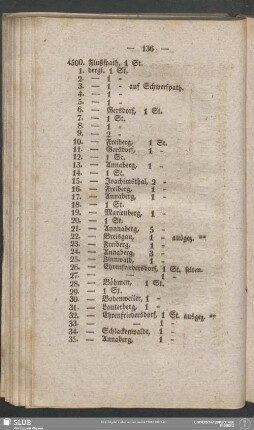 — 136 —
4500. Flußspath, 1 St.
1. dergl. 1 St.
2. — 1 „
3. — 1 „ auf Schwerspath.
4. — 1 „
5. — 1 „
6. — Gersdorf, 1 St.
7. — 1 St.
8. — 1 „
9. — 2 „
10. — Freiberg, 1 St.
11. — Gersdorf, 1 „
12. — 1 St.
13. — Annaberg, 1 „
14. — 1 St.
15. — Joachimsthal, 2 „
16. — Freiberg, 1 „
17. — Annaberg, 1 „
18. — 1 St.
19. — Marienberg, 1 „
20. — 1 St.
21. — Annnaberg, 5 „
22. — Breisgau, 1 „ ausgez. **
23. — Freiberg, 1 „
24. — Annaberg, 3 „
25. — Zinnwald, 1 „
26. — Ehrenfriedersdorf, 1 St. selten.
27. — 1 „
28. — Böhmen, 1 St.
29. — 1 St.
30. — Badenweiler, 1 „
31. — Lauterberg, 1 „
32. — Ehrenfriedersdorf, 1 St. ausgez. **
33. — 1 „
34. — Schlackenwalde, 1 „
35. — Annaberg, 1 „
SLUB